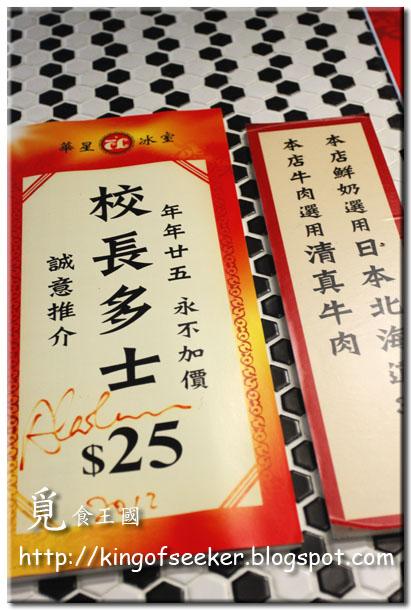 華星冰室
年年廿五 永不加價
校長多士
誠意推介
$25
2012
本店鮮奶選用日本北海道
本店牛肉選用清真牛肉
覓食王國
http://kingofseeker.blogspot.com